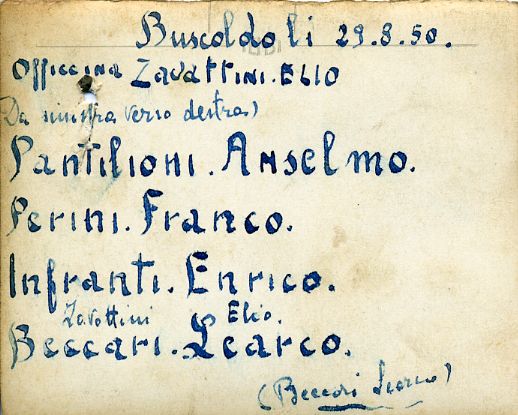 Buscoldo li 29.8.50.
Officcina Zavattini.Elio
Da sinistra verso destra)
Pantilioni. Anselmo.
Perini. Franco.
Infranti. Enrico.
Zavottini Elio.
Beccari. Learco.
(Beccari Learco)